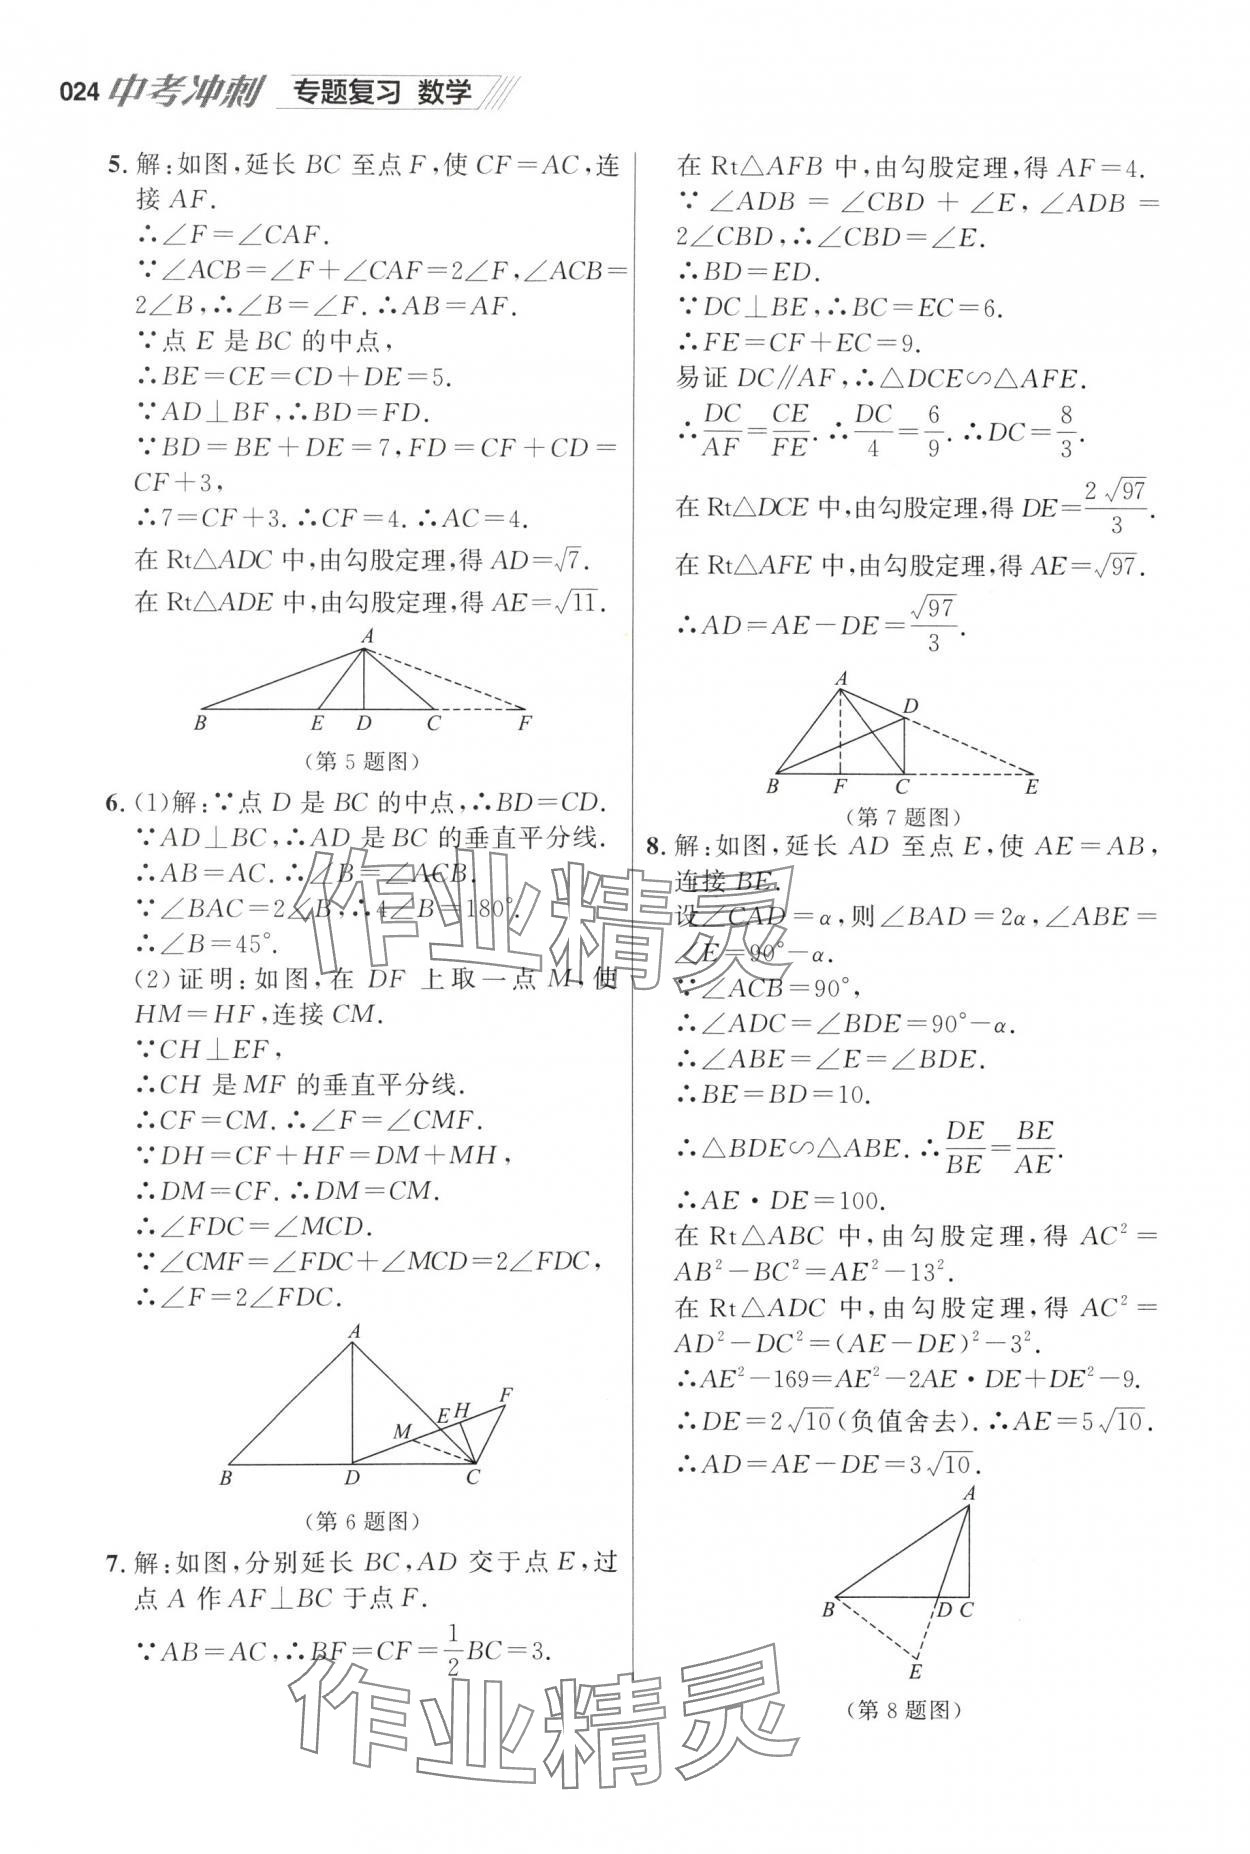 024 中考冲刺 专题复习 数学
5. 解:如图,延长 BC 至点 F,使 CF=AC,连
接 AF.
∴∠F=∠CAF.
∵∠ACB=∠F+∠CAF=2∠F,∠ACB=
2∠B,∴∠B=∠F.∴AB=AF.
∵点 E 是 BC 的中点,
∴BE=CE=CD+DE=5.
∵AD⊥BF,∴BD=FD.
∵BD=BE+DE=7,FD=CF+CD=
CF+3,
∴7=CF+3.∴CF=4.∴AC=4.
在 Rt△ADC 中,由勾股定理,得 AD=√7.
在 Rt△ADE 中,由勾股定理,得 AE=√11.
A
B E D C F
(第 5 题图)
6. (1)解:∵点 D 是 BC 的中点,∴BD=CD.
∵AD⊥BC,∴AD 是 BC 的垂直平分线.
∴AB=AC.∴∠B=∠ACB.
∵∠BAC=2∠B,∴4∠B=180°.
∴∠B=45°.
(2)证明:如图,在 DF 上取一点 M,使
HM=HF,连接 CM.
∵CH⊥EF,
∴CH 是 MF 的垂直平分线.
∴CF=CM.∴∠F=∠CMF.
∵DH=CF+HF=DM+MH,
∴DM=CF.∴DM=CM.
∴∠FDC=∠MCD.
∵∠CMF=∠FDC+∠MCD=2∠FDC,
∴∠F=2∠FDC.
A
F
E H
M
B D C
(第 6 题图)
7. 解:如图,分别延长 BC,AD 交于点 E,过
点 A 作 AF⊥BC 于点 F.
∵AB=AC,∴BF=CF=1/2BC=3.
在 Rt△AFB 中,由勾股定理,得 AF=4.
∵∠ADB=∠CBD+∠E,∠ADB=
2∠CBD,∴∠CBD=∠E.
∴BD=ED.
∵DC⊥BE,∴BC=EC=6.
∴FE=CF+EC=9.
易证 DC∥AF,∴△DCE∽△AFE.
∴DC/AF=CE/FE.∴DC/4=6/9.∴DC=8/3.
在 Rt△DCE 中,由勾股定理,得 DE=2√97/3.
在 Rt△AFE 中,由勾股定理,得 AE=√97.
∴AD=AE-DE=√97/3.
A
D
B F C E
(第 7 题图)
8. 解:如图,延长 AD 至点 E,使 AE=AB,
连接 BE.
设∠CAD=α,则∠BAD=2α,∠ABE=
∠E=90°-α.
∵∠ACB=90°,
∴∠ADC=∠BDE=90°-α.
∴∠ABE=∠E=∠BDE.
∴BE=BD=10.
∴△BDE∽△ABE.∴DE/BE=BE/AE.
∴AE·DE=100.
在 Rt△ABC 中,由勾股定理,得 AC²=
AB²-BC²=AE²-13².
在 Rt△ADC 中,由勾股定理,得 AC²=
AD²-DC²=(AE-DE)²-3².
∴AE²-169=AE²-2AE·DE+DE²-9.
∴DE=2√10(负值舍去).∴AE=5√10.
∴AD=AE-DE=3√10.
A
B D C
E
(第 8 题图)
作业精灵
作业精灵